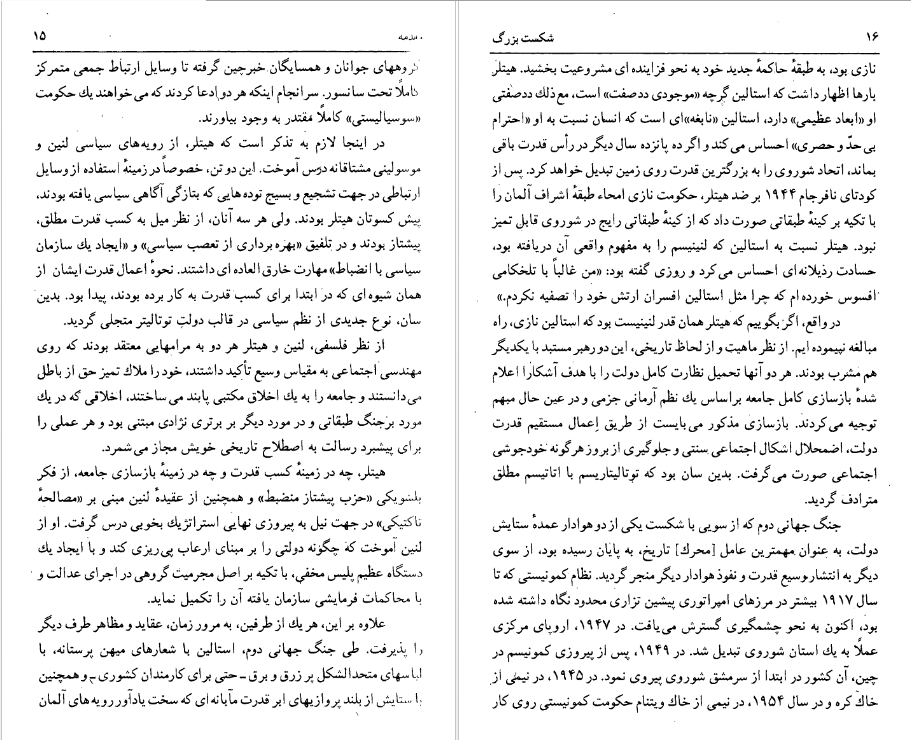 ۱۵
گروههای جوانان و همسایگان خبرچین گرفته تا وسایل ارتباط جمعی متمرکز
کاملاً تحت سانسور. سرانجام اینکه هر دو ادعا کردند که می‌خواهند یك حکومت
«سوسیالیستی» کاملاً مقتدر به وجود بیاورند.
در اینجا لازم به تذکر است که هیتلر، از رویه‌های سیاسی لنین و
موسولینی مشتاقانه درس آموخت. این دو تن، خصوصاً در زمینهٔ استفاده از وسایل
ارتباطی در جهت تشجیع و بسیج توده‌هایی که بتازگی آگاهی سیاسی یافته بودند،
پیش کسوتان هیتلر بودند. ولی هر سه آنان، از نظر میل به کسب قدرت مطلق،
پیشتاز بودند و در تلفیق «بهره‌برداری از تعصب سیاسی» و «ایجاد یك سازمان
سیاسی با انضباط» مهارت خارق العاده‌ای داشتند. نحوهٔ اعمال قدرت ایشان از
همان شیوه‌ای که در ابتدا برای کسب قدرت به کار برده بودند، پیدا بود. بدین
سان، نوع جدیدی از نظم سیاسی در قالب دولت توتالیتر متجلی گردید.
از نظر فلسفی، لنین و هیتلر هر دو به مرامهایی معتقد بودند که روی
مهندسی اجتماعی به مقیاس وسیع تأکید داشتند، خود را ملاك تمیز حق از باطل
می‌دانستند و جامعه را به یك اخلاق مکتبی پابند می‌ساختند، اخلاقی که در یك
مورد بر جنگ طبقاتی و در مورد دیگر بر برتری نژادی مبتنی بود و هر عملی را
برای پیشبرد رسالت به اصطلاح تاریخی خویش مجاز می‌شمرد.
هیتلر، چه در زمینهٔ کسب قدرت و چه در زمینهٔ بازسازی جامعه، از فکر
بلشویکی «حزب پیشتاز منضبط» و همچنین از عقیدهٔ لنین مبنی بر «مصالحهٔ
تاکتیکی» در جهت نیل به پیروزی نهایی استراتژیك بخوبی درس گرفت. او از
لنین آموخت که چگونه دولتی را بر مبنای ارعاب پی‌ریزی کند و با ایجاد یك
دستگاه عظیم پلیس مخفی، با تکیه بر اصل مجرمیت گروهی در اجرای عدالت و
با محاکمات فرمایشی سازمان یافته آن را تکمیل نماید.
علاوه بر این، هر یك از طرفین، به مرور زمان، عقاید و مظاهر طرف دیگر
را پذیرفت. طی جنگ جهانی دوم، استالین با شعارهای میهن پرستانه، با
لباسهای متحدالشکل پر زرق و برق ـ حتی برای کارمندان کشوری ـ و همچنین
با ستایش از بلند پروازیهای ابر قدرت مآبانه‌ای که سخت یادآور رویه‌های آلمان
۱۶ شکست بزرگ
نازی بود، به طبقهٔ حاکمهٔ جدید خود به نحو فزاینده‌ای مشروعیت بخشید. هیتلر
بارها اظهار داشت که استالین گرچه «موجودی ددصفت» است، مع‌ذلك ددصفتی
او «ابعاد عظیمی» دارد، استالین «نابغه»ای است که انسان نسبت به او «احترام
بی‌حدّ و حصری» احساس می‌کند و اگر ده پانزده سال دیگر در رأس قدرت باقی
بماند، اتحاد شوروی را به بزرگترین قدرت روی زمین تبدیل خواهد کرد. پس از
کودتای نافرجام ۱۹۴۴ بر ضد هیتلر، حکومت نازی امحاء طبقهٔ اشراف آلمان را
با تکیه بر کینهٔ طبقاتی صورت داد که از کینهٔ طبقاتی رایج در شوروی قابل تمیز
نبود. هیتلر نسبت به استالین که لنینیسم را به مفهوم واقعی آن دریافته بود،
حسادت رذیلانه‌ای احساس می‌کرد و روزی گفته بود: «من غالباً با تلخکامی
افسوس خورده‌ام که چرا مثل استالین افسران ارتش خود را تصفیه نکردم.»
در واقع، اگر بگوییم که هیتلر همان قدر لنینیست بود که استالین نازی، راه
مبالغه نپیموده‌ایم. از نظر ماهیت و از لحاظ تاریخی، این دو رهبر مستبد با یکدیگر
هم مشرب بودند. هر دو آنها تحمیل نظارت کامل دولت را با هدف آشکارا اعلام
شدهٔ بازسازی کامل جامعه براساس یك نظم آرمانی جزمی و در عین حال مبهم
توجیه می‌کردند. بازسازی مذکور می‌بایست از طریق اِعمال مستقیم قدرت
دولت، اضمحلال اشکال اجتماعی سنتی و جلوگیری از بروز هرگونه خودجوشی
اجتماعی صورت می‌گرفت. بدین سان بود که توتالیتاریسم با اتاتیسم مطلق
مترادف گردید.
جنگ جهانی دوم که از سویی با شکست یکی از دو هوادار عمدهٔ ستایش
دولت، به عنوان مهمترین عامل [محرك] تاریخ، به پایان رسیده بود، از سوی
دیگر به انتشار وسیع قدرت و نفوذ هوادار دیگر منجر گردید. نظام کمونیستی که تا
سال ۱۹۱۷ بیشتر در مرزهای امپراتوری پیشین تزاری محدود نگاه داشته شده
بود، اکنون به نحو چشمگیری گسترش می‌یافت. در ۱۹۴۷، اروپای مرکزی
عملاً به یك استان شوروی تبدیل شد. در ۱۹۴۹، پس از پیروزی کمونیسم در
چین، آن کشور در ابتدا از سرمشق شوروی پیروی نمود. در ۱۹۴۵، در نیمی از
خاك کره و در سال ۱۹۵۴، در نیمی از خاك ویتنام حکومت کمونیستی روی کار